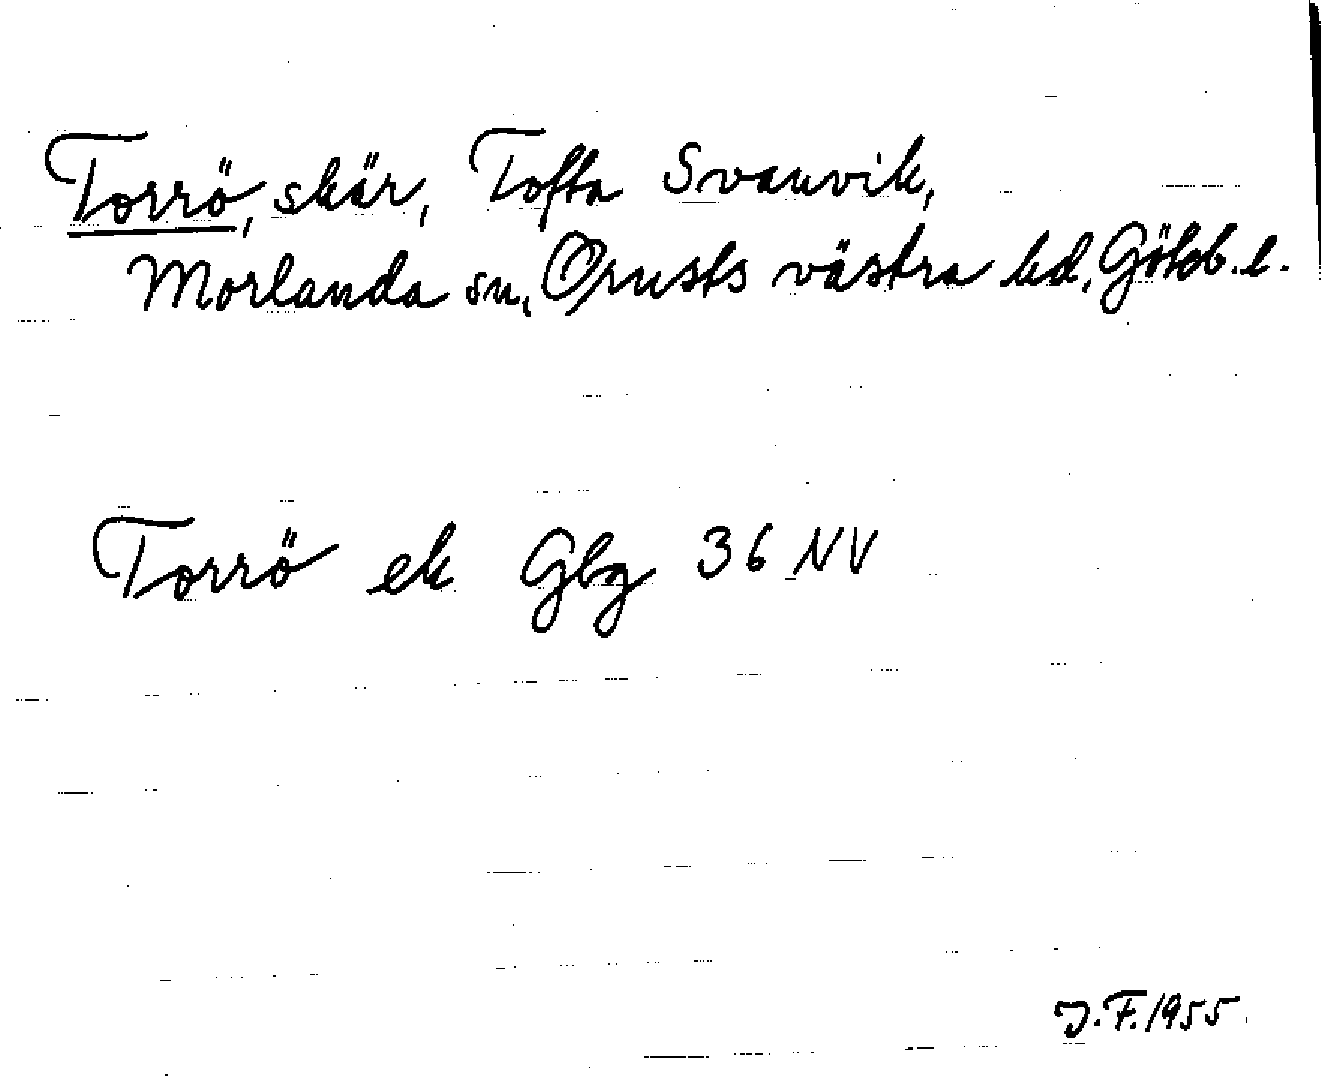 Torrö, skär, Tofta Svanvik,
Morlanda sn, Orusts västra hd, Göteb. l.
Torrö ek Gbg 36 NV
J.F. 1955